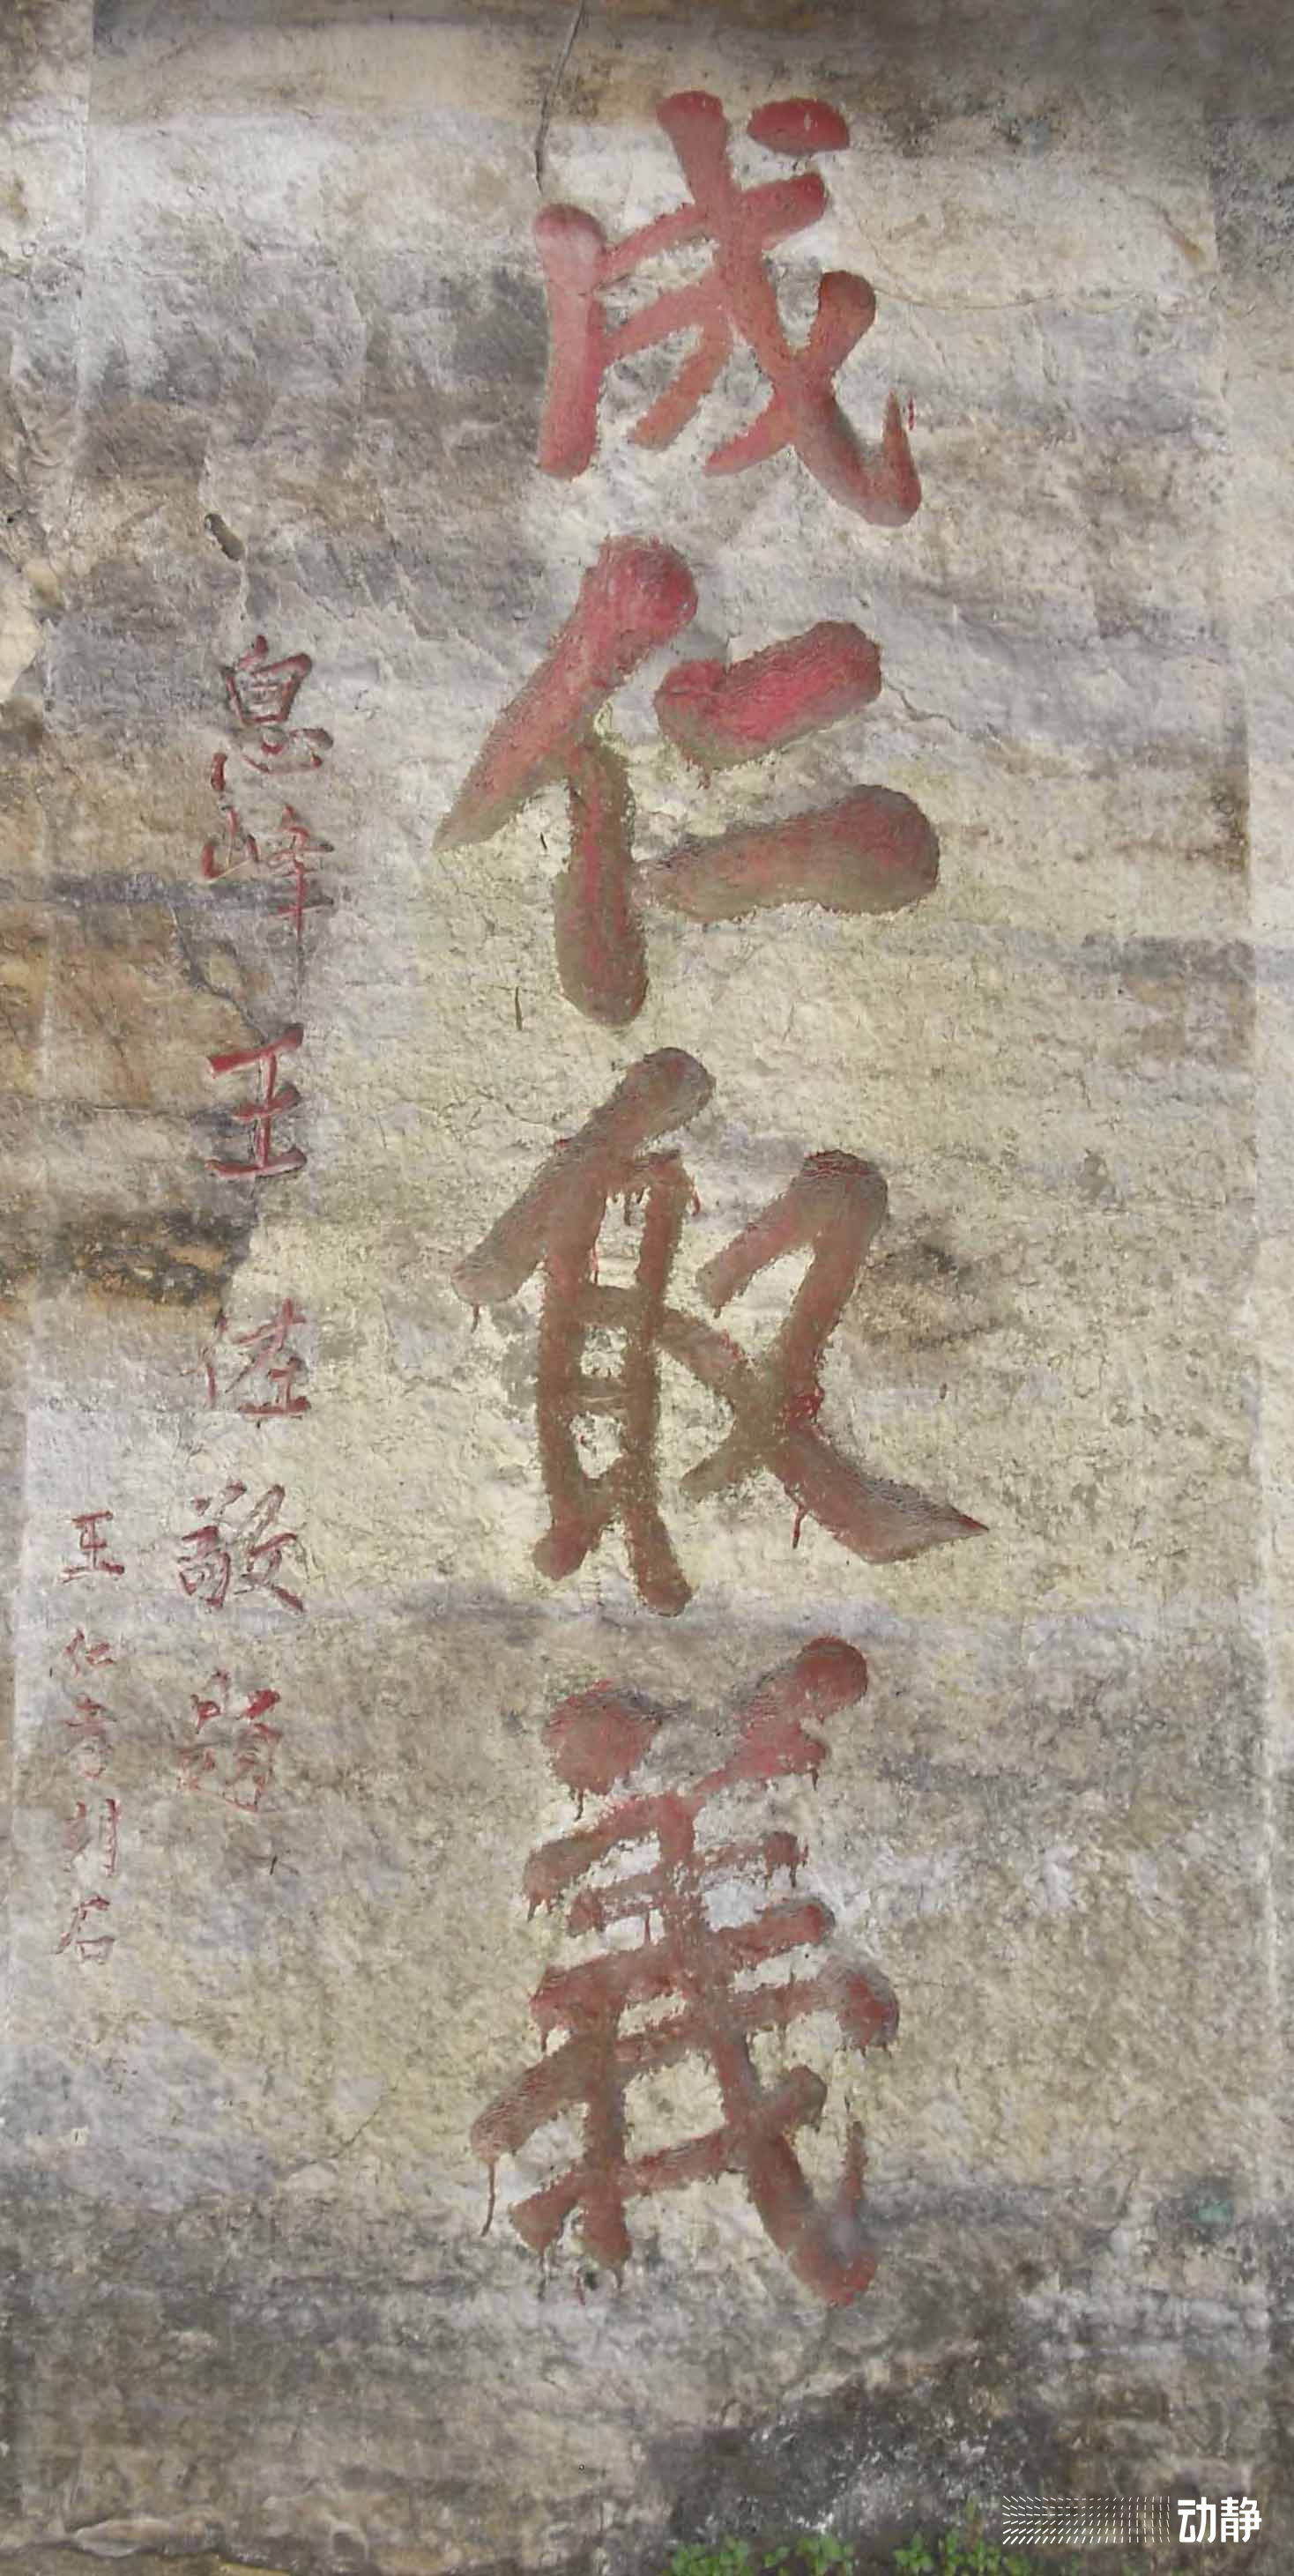 成仁取義
息峰王佐敬題
王仁孝刻石
动静